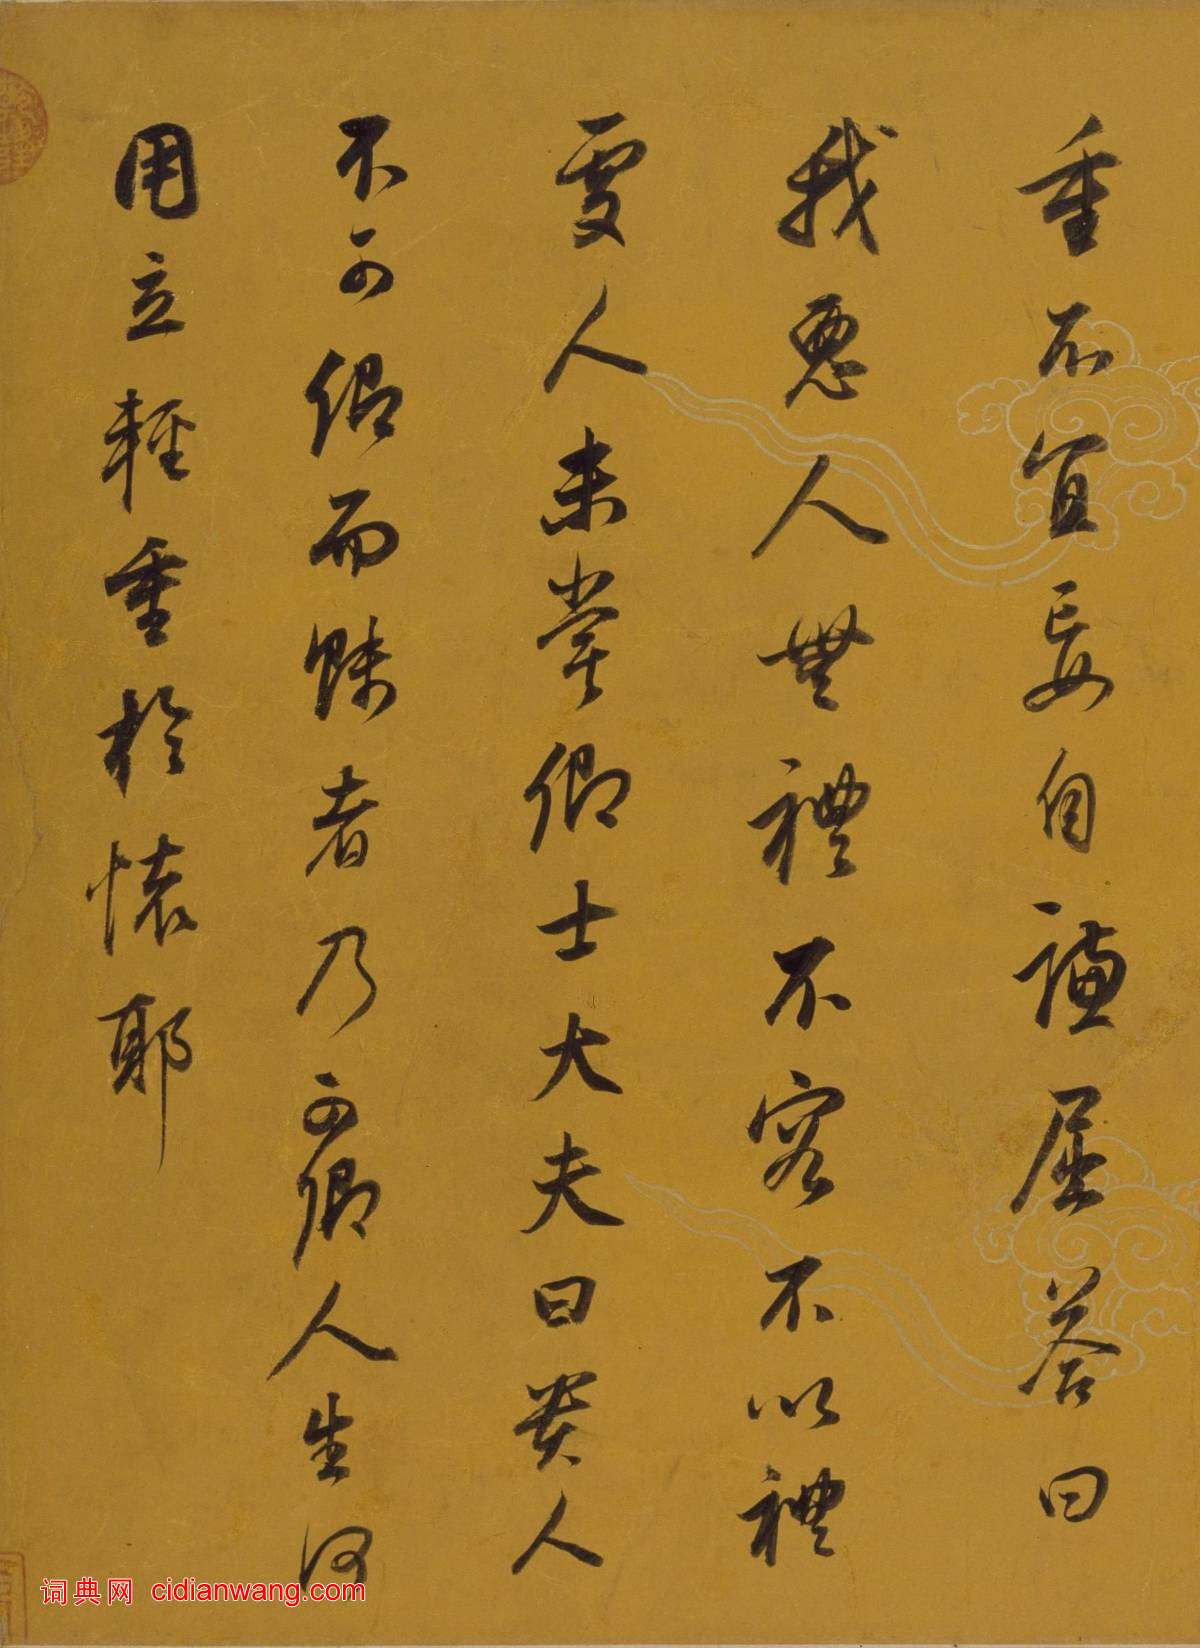 重不宜妄自謙屈荅曰
我惡人無禮不容不以禮
處人未嘗卿士大夫曰貴人
不可卿而賤者乃可卿人生何
用立輕重於懷耶
词典网 cidianwang.com